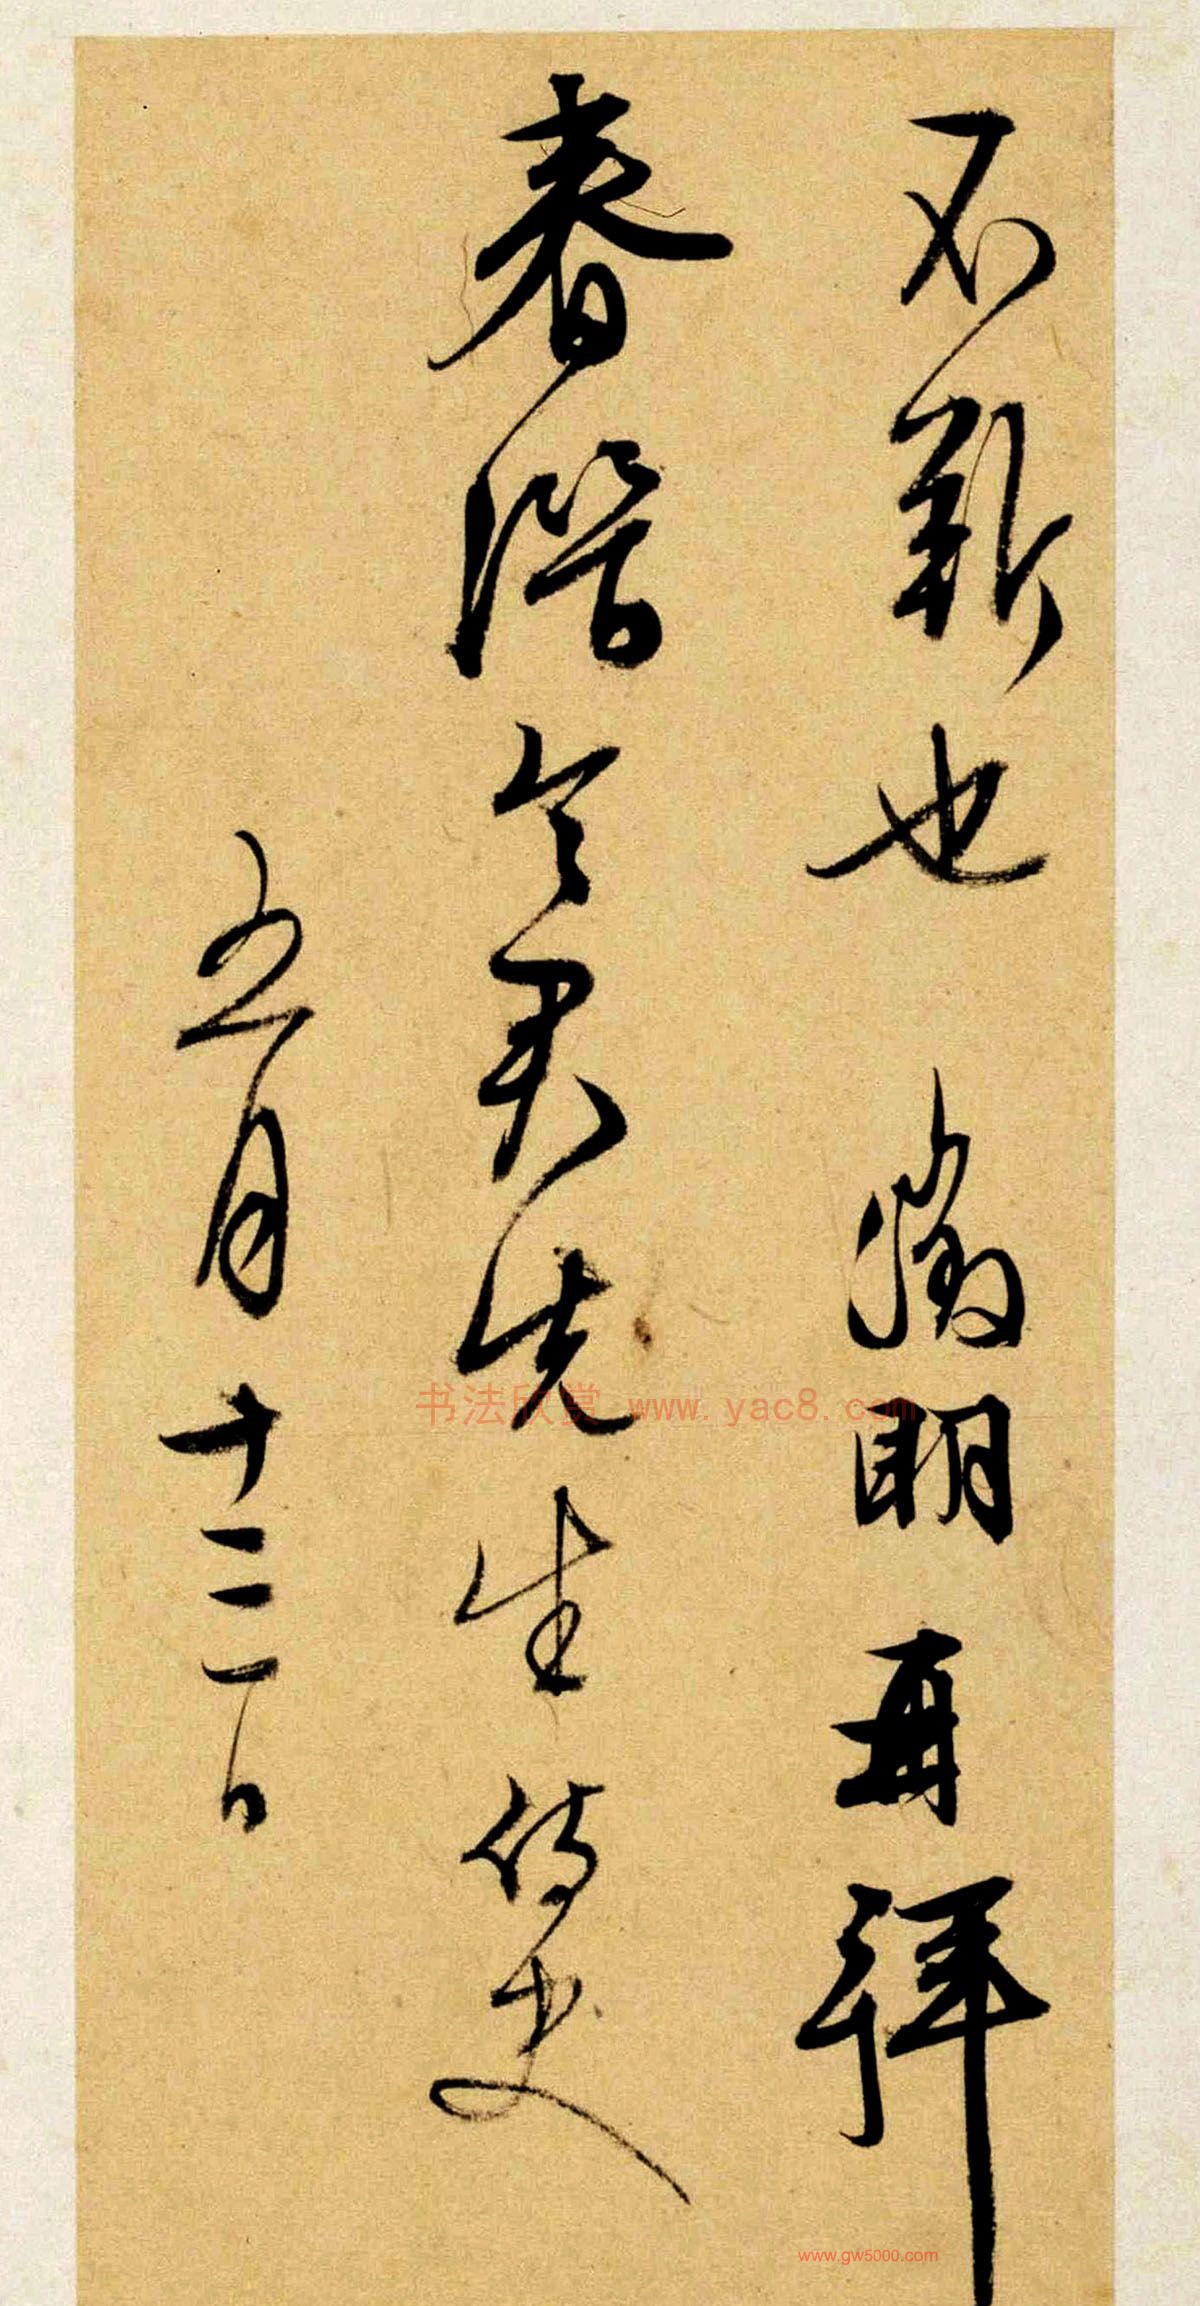 不斬也 徵明再拜
春潛令君先生侍史
五月十三日
书法欣赏 www.yac8.com
www.gw5000.com